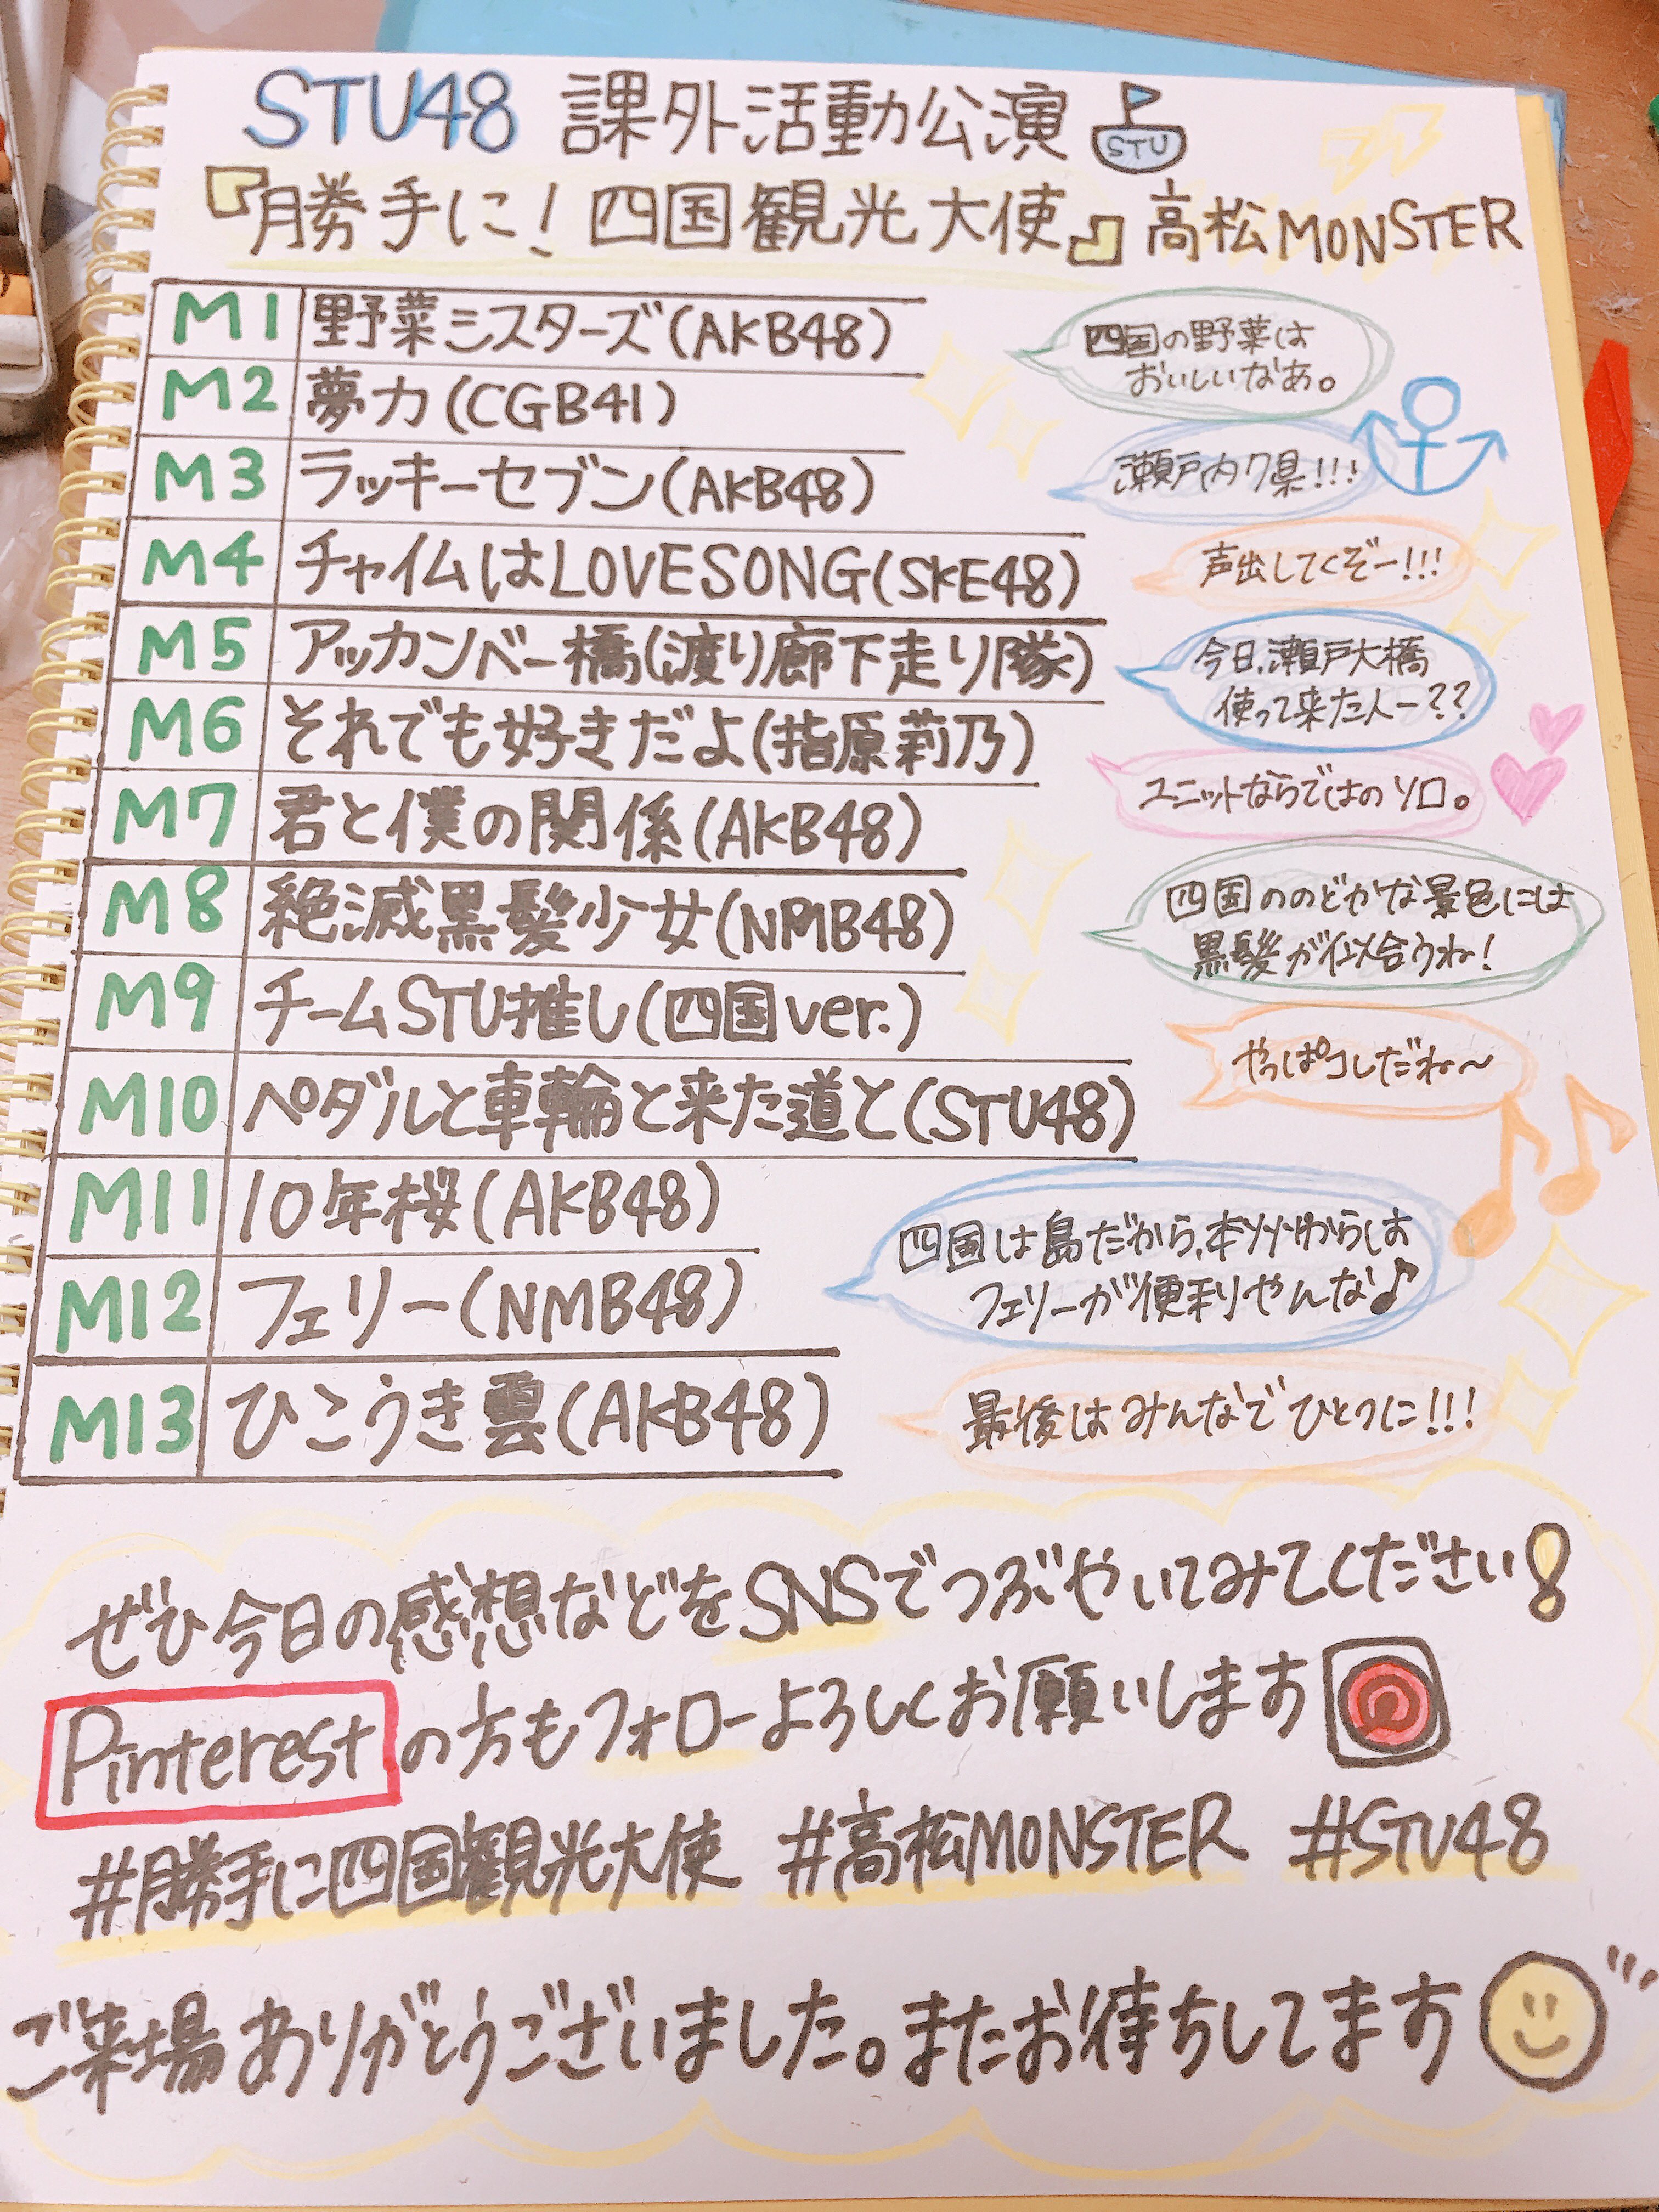 STU48 課外活動公演
STU
『勝手に！四国観光大使』高松MONSTER
M1 野菜シスターズ(AKB48)
四国の野菜は
おいしいなあ。
M2 夢力(CGB41)
M3 ラッキーセブン(AKB48)
瀬戸内7県!!!
M4 チャイムはLOVESONG(SKE48)
声出してくぞー!!!
M5 アッカンベー橋(渡り廊下走り隊)
今日、瀬戸大橋
使って来た人ー??
M6 それでも好きだよ(指原莉乃)
ユニットならではのソロ。
M7 君と僕の関係(AKB48)
M8 絶滅黒髪少女(NMB48)
四国ののどかな景色には
黒髪が似合うね！
M9 チームSTU推し(四国ver.)
やっぱコレだね〜
M10 ペダルと車輪と来た道と(STU48)
M11 10年桜(AKB48)
M12 フェリー(NMB48)
四国は島だから、本州からは
フェリーが便利やんな♪
M13 ひこうき雲(AKB48)
最後はみんなでひとつに!!!
ぜひ今日の感想などをSNSでつぶやいてみてください！
Pinterestの方もフォローよろしくお願いします
#勝手に四国観光大使 #高松MONSTER #STU48
ご来場ありがとうございました。またお待ちしてます